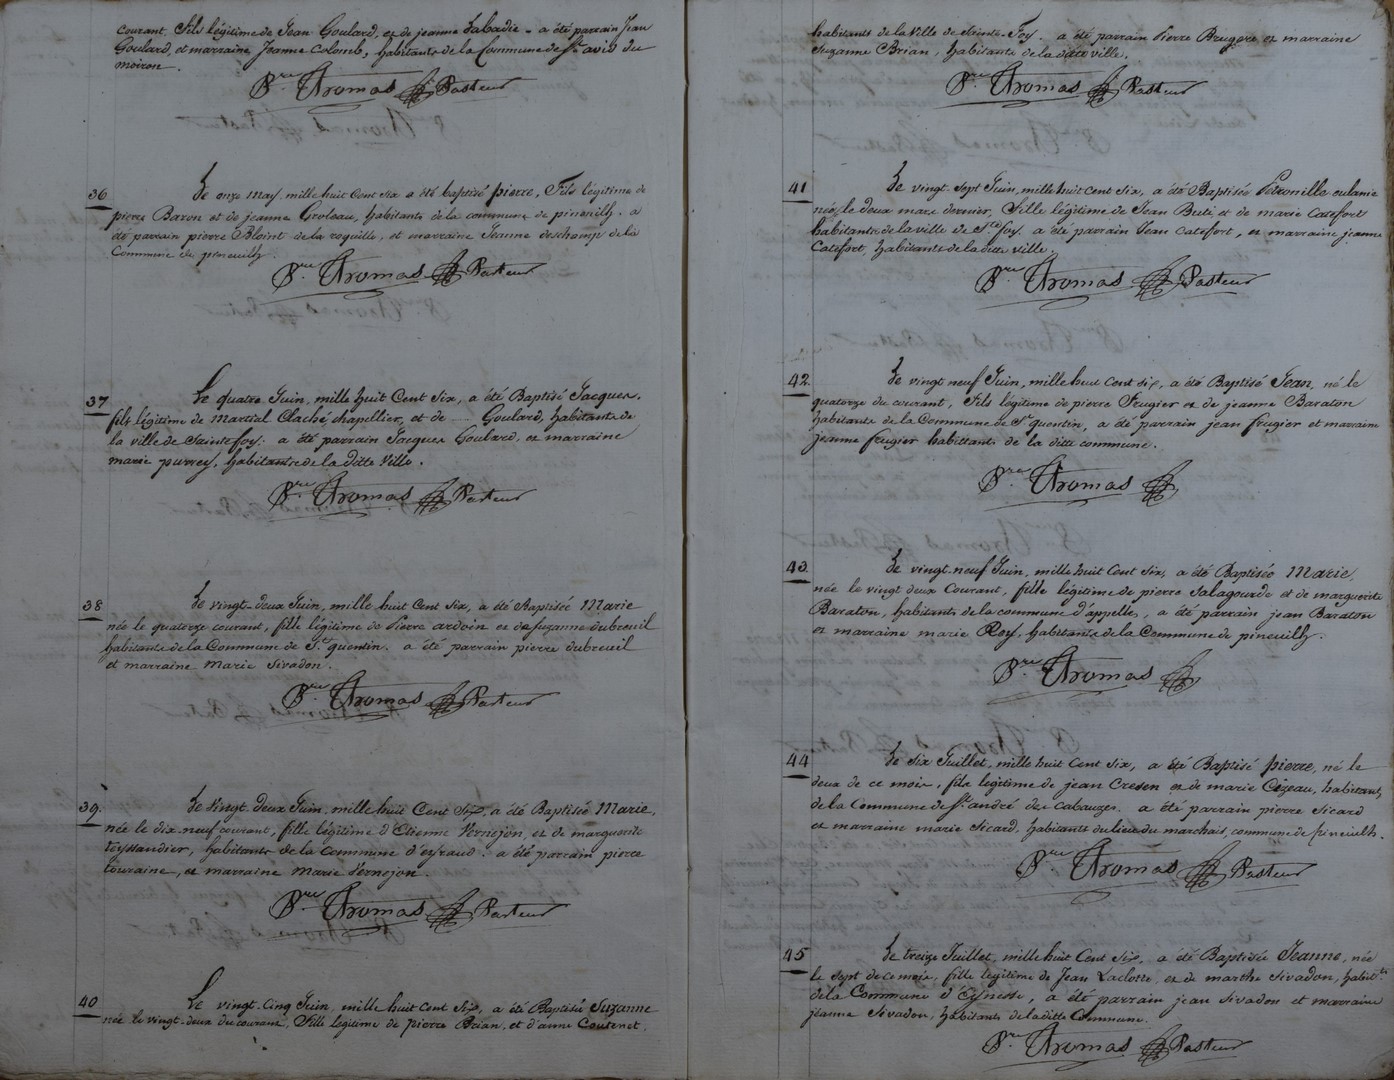 courant, fils légitime de Jean Goulard, et de jeanne Labadie - a été parrain Jean
Goulard, et marraine Jeanne Colomb, habitants de la Commune de St. avid du
moiron.
Pre. Thomas Pasteur
36
Le onze May, mille huit Cent six a été baptisé pierre, Fils légitime de
pierre Baron et de jeanne Groleau, habitants de la commune de pineuilh. a
été parrain pierre de la roquille, et marraine Jeanne deschamp de la
Commune de pineuilh.
Pre. Thomas Pasteur
37
Le quatre Juin, mille huit Cent Six, a été Baptisé Jacques,
fils légitime de Martial Claché chapellier, et de Goulard, habitants de
la ville de Saintefoy. a été parrain Jacques Goulard, et marraine
marie purrey, habitants de la ditte Ville.
Pre. Thomas Pasteur
38
Le vingt-deux Juin, mille huit Cent Six, a été Baptisée Marie
née le quatorze courant, fille légitime de Pierre ardoin et de Suzanne dubreuil
habitants de la Commune de St. quentin. a été parrain pierre dubreuil
et marraine Marie Sivadon.
Pre. Thomas Pasteur
39.
Le vingt-deux Juin, mille huit Cent Six, a été Baptisée Marie,
née le dix-neuf courant, fille légitime d'Etienne Vernejon, et de marguerite
teyssandier, habitants de la Commune d'eyraud. a été parrain pierre
touraine, et marraine Marie Vernejon.
Pre. Thomas Pasteur
40
Le vingt-Cinq Juin, mille huit Cent Six, a été Baptisée Suzanne
née le vingt-deux du courant, Fille légitime de pierre Brian, et d'anne Coutenet.
habitants de la Ville de Sainte-Foy. a été parrain Pierre Brugere et marraine
Suzanne Brian, habitants de la ditte ville.
Pre. Thomas Pasteur
41
Le vingt-sept Juin, mille huit Cent Six, a été Baptisée Petronille eulamie
née le deux mars dernier, Fille légitime de Jean Buti et de marie Catefort
habitants de la ville de Ste foy. a été parrain Jean Catefort, et marraine jeanne
Catefort, habitants de la ditte ville.
Pre. Thomas Pasteur
42
Le vingt neuf Juin, mille huit Cent Six, a été Baptisé Jean, né le
quatorze du courant, Fils légitime de pierre Frugier et de jeanne Baraton
habitants de la Commune de St. quentin, a été parrain jean frugier et marraine
jeanne frugier habittants de la ditte commune.
Pre. Thomas
43
Le vingt-neuf Juin, mille huit Cent Six, a été Baptisée Marie,
née le vingt deux Courant, fille légitime de pierre Salagourde et de marguerite
Baraton, habitants de la commune d'appelles, a été parrain jean Baraton
et marraine marie Rey, habitants de la Commune de pineuilh.
Pre. Thomas
44
Le Six Juillet, mille huit Cent Six, a été Baptisé pierre, né le
deux de ce mois, fils légitime de jean Creson et de marie Cizeau, habitants
de la Commune de St. andré de Cabauzes. a été parrain pierre Sicard
et marraine marie Sicard, habitants du lieu du marchais, commune de pineuilh.
Pre. Thomas Pasteur
45
Le treize Juillet, mille huit Cent Six, a été Baptisée Jeanne, née
le Sept de ce mois, fille légitime de Jean Laclotte, et de marthe Sivadon, habitts.
de la Commune d'Eynesse, a été parrain jean Sivadon et marraine
jeanne Sivadon, habitants de la ditte Commune.
Pre. Thomas Pasteur